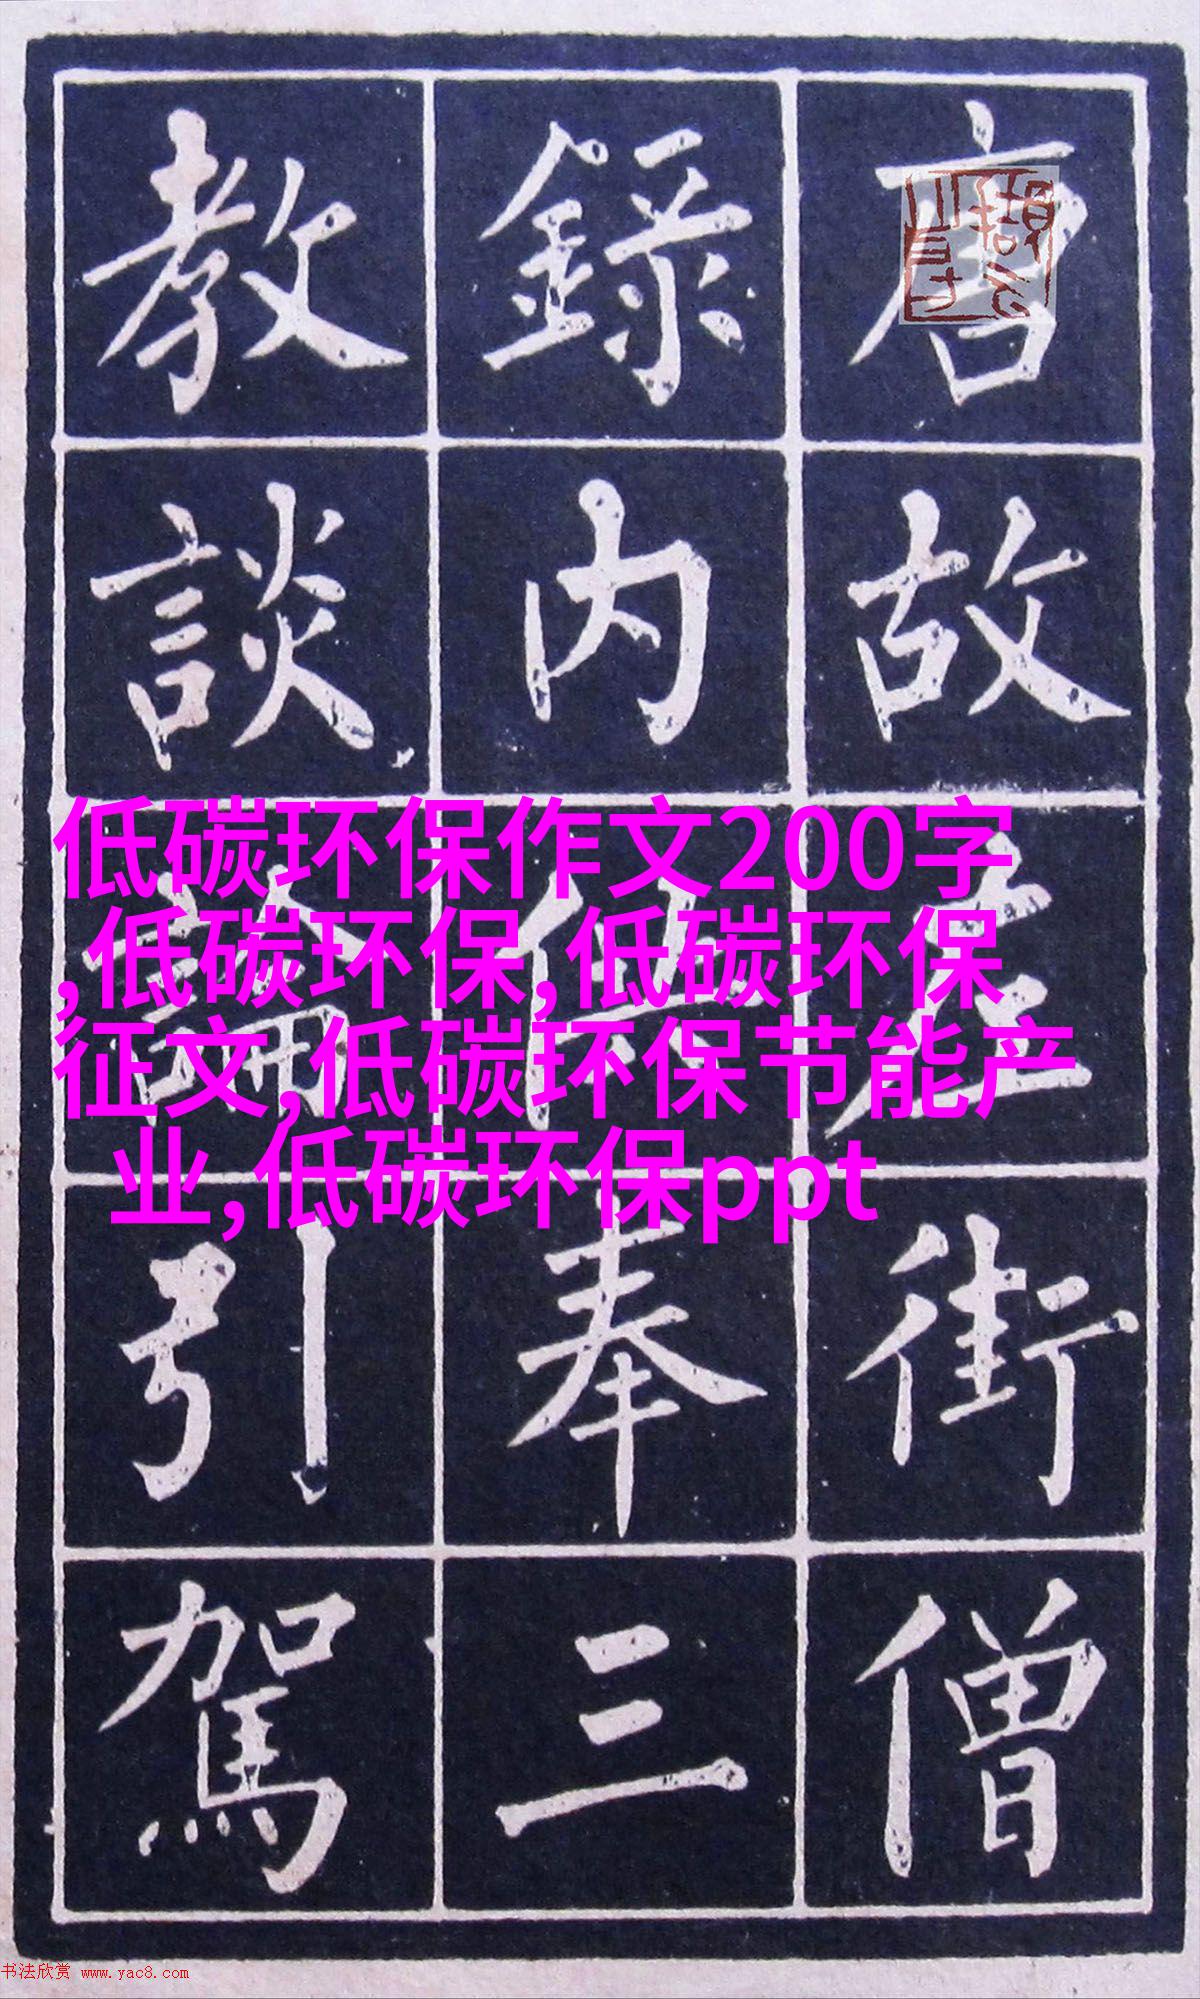 唐故左街僧
錄內供奉三
教談論引駕
低碳环保作文200字
,低碳环保,低碳环保
征文,低碳环保节能产
业,低碳环保ppt
书法欣赏 www.yac8.com